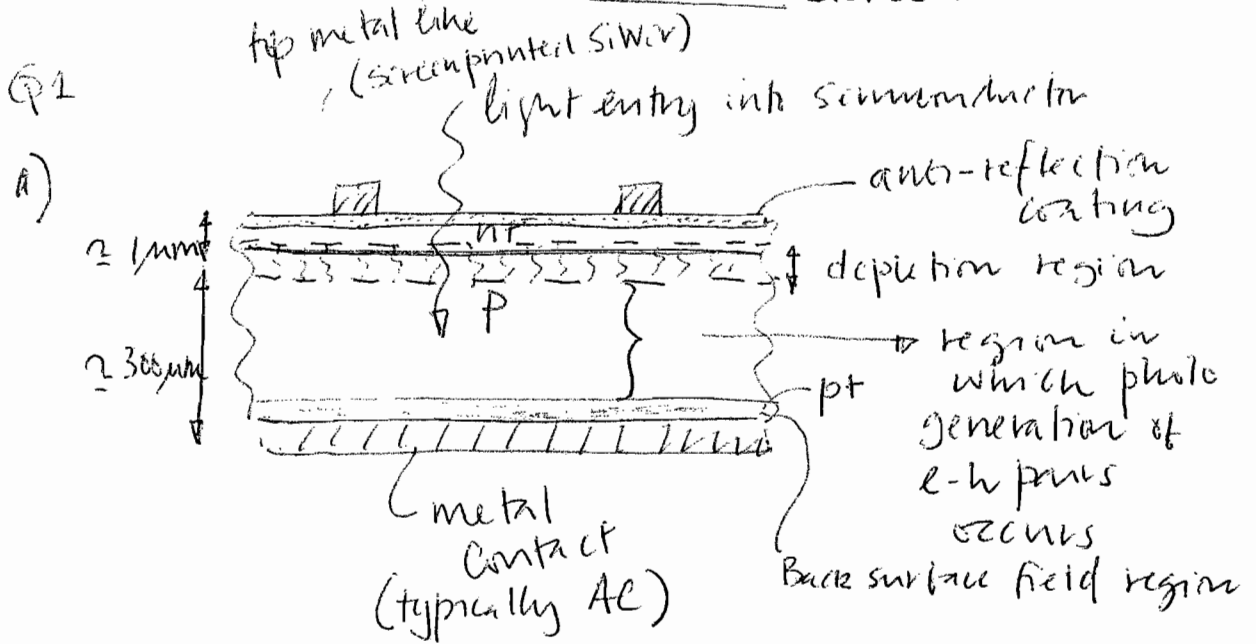 top metal line
(screenprinted Silver)
Q1
light entry into semiconductor
a)
anti-reflection
coating
≃ 1μm
n+
depletion region
p
≃ 300μm
region in
which photo
generation of
e-h pairs
occurs
p+
metal
contact
(typically Al)
Back surface field region